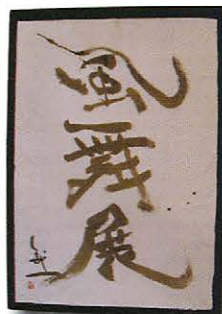 風舞展